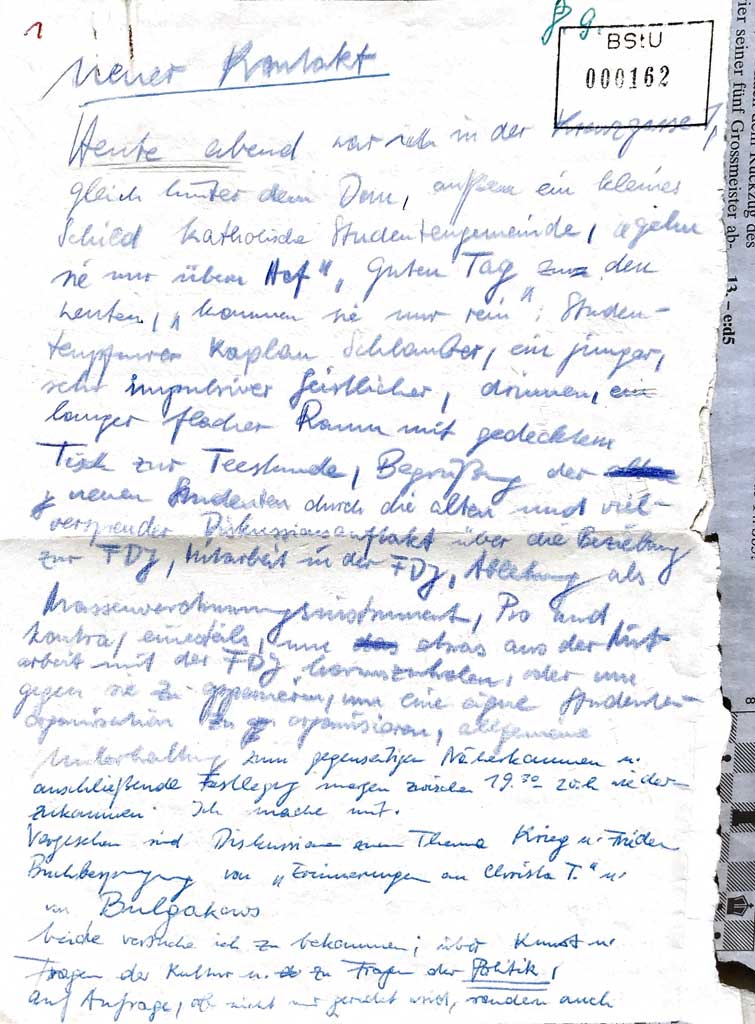 1
8 9
BStU
000162
Neuer Kontakt
Heute abend war ich in der Kreuzgasse 1,
gleich hinter dem Dom, außen ein kleines
Schild katholische Studentengemeinde, „gehn
sie nur übern Hof“, Guten Tag den
Leuten, „kommen sie nur rein“, Studen-
tenpfarrer Kaplan, ein junger,
sehr impulsiver Geistlicher, drinnen, ein
langer flacher Raum mit gedecktem
Tisch zur Teestunde, Begrüßung der alten
neuen Studenten durch die alten und viel-
versprender Diskussionsauftakt über die Beziehung
zur FDJ, Mitarbeit in der FDJ, Ablehnung als
Massenverdummungsinstrument, Pro und
Kontra, einesteils, um das etwas aus der Mit
arbeit mit der FDJ herauszuholen, oder um
gegen sie zu opponieren, um eine eigne Studenten-
organisation zu organisieren, allgemeine
Unterhaltung zum gegenseitigen Näherkommen u.
anschließende Festlegung morgen zwischen 19.30 - 20h wieder
zukommen. Ich mache mit.
Vorgesehen sind Diskussionen zum Thema Krieg u. Frieden
Buchbesprechung von „Erinnerungen an Christa T.“ u.
von Bulgakows
beide versuche ich zu bekommen; über Kunst u.
Fragen der Kultur u. zu Fragen der Politik,
auf Anfrage, ob nicht nur geredet wird, sondern auch
dem Rückzug des
ier seiner fünf Grossmeister ab-
13. – e:d5
8